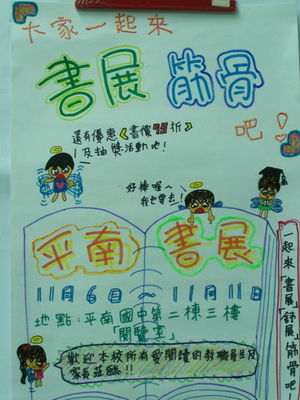 大家一起來
書展 筋骨
吧!
還有優惠《書價79折》
及抽獎活動吔!
好棒喔~
我也要去!
平南 書展
11月6日~11月11日
地點:平南國中第二棟三樓
「閱覽室」
歡迎本校所有愛閱讀的教職員生及
家長莅臨!!
一起來「書展」「舒展」筋骨吧!